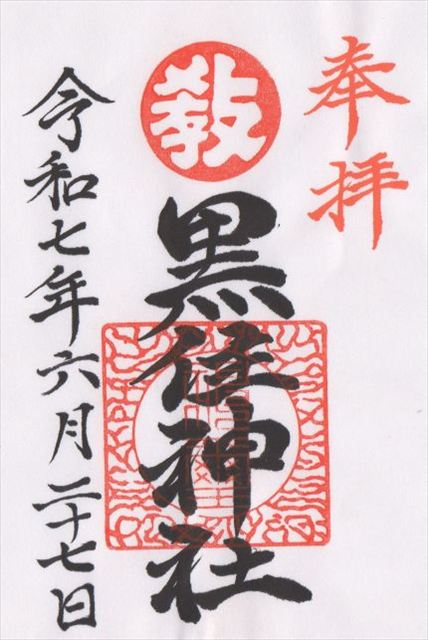 奉拝
教
黒住神社
令和七年六月二十七日